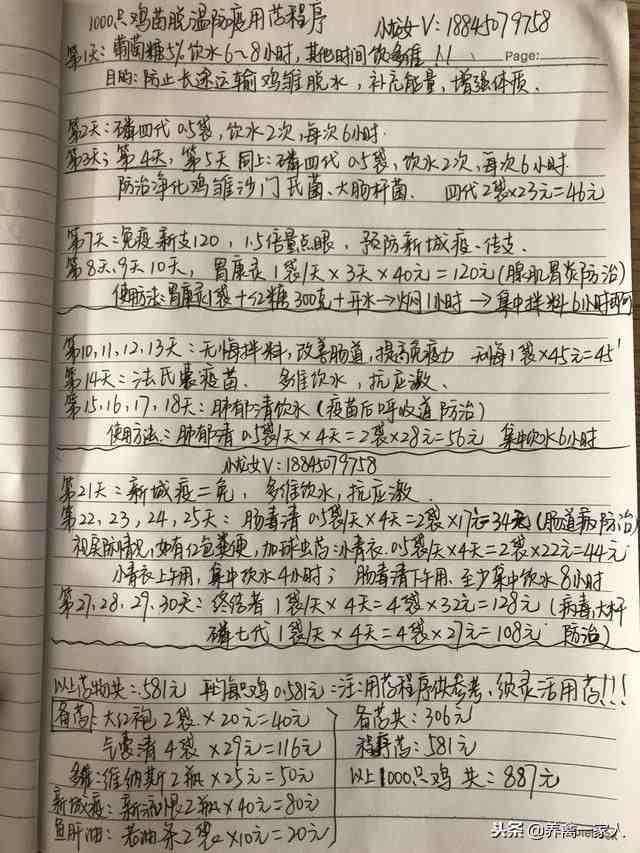 1000只鸡苗脱温防疫用药程序 小龙女V:18845079758
第1天:葡萄糖5%饮水6~8小时,其他时间饮多维!!
Page:
目的:防止长途运输鸡雏脱水,补充能量,增强体质.
第2天:磷四代0.5袋,饮水2次,每次6小时.
第3天;第4天,第5天同上:磷四代0.5袋,饮水2次,每次6小时.
防治净化鸡雏沙门氏菌、大肠杆菌. 四代2袋×23元=46元
第7天:免疫新支120,1.5倍量点眼,预防新城疫、传支.
第8天、9天10天,胃康灵1袋/天×3天×40元=120元(腺肌胃炎防治)
使用方法:胃康灵1袋+红糖300克+开水→焖1小时→集中拌料6小时即可
第10,11,12,13天:无悔拌料,改善肠道,提高免疫力 无悔1袋×45元=45
第14天:法氏囊疫苗. 多维饮水,抗应激.
第15,16,17,18天:肺郁清饮水(疫苗后呼吸道防治)
使用方法:肺郁清0.5袋/天×4天=2袋×28元=56元 集中饮水6小时
小龙女V:18845079758
第21天:新城疫二免,多维饮水,抗应激.
第22,23,24,25天:肠毒清0.5袋/天×4天=2袋×17元=34元(肠道病防治)
视实际情况,如有红色粪便,加球虫药:小青衣0.5袋/天×4天=2袋×22元=44元
小青衣上午用,集中饮水4小时;肠毒清下午用、至少集中饮水8小时
第27,28、29、30天:终结者1袋/天×4天=4袋×32元=128元(病毒大杆
磷七代1袋/天×4天=4袋×27元=108元 防治)
以上药物共:581元 平均每只鸡0.581元:注:用药程序供参考,须灵活用药!!!
备药:大红袍2袋×20元=40元
气囊清4袋×29元=116元
多维:维纳斯2瓶×25元=50元
新城疫:新流慌2瓶×40元=80元
鱼肝油:老油条2袋×10元=20元
备药共:306元
程序药:581元
以上1000只鸡共:887元
头条@养禽一家人